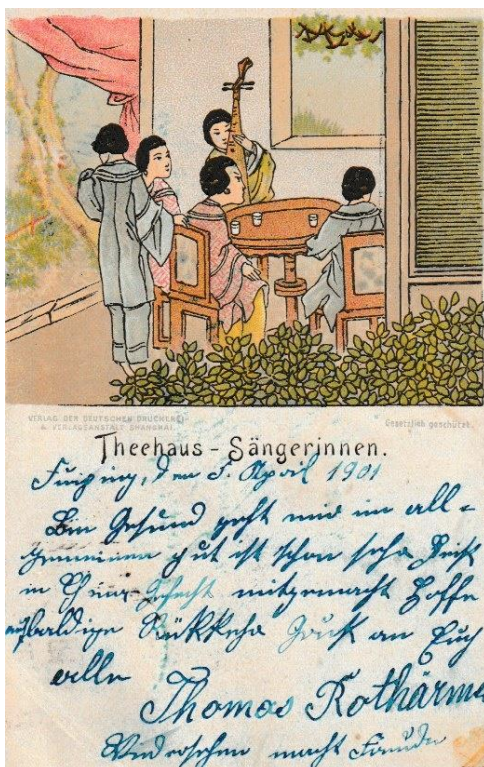 VERLAG DER DEUTSCHEN DRUCKEREI
& VERLAGSANSTALT SHANGHAI.
Gesetzlich geschützt.
Theehaus-Sängerinnen.
den 5. April 1901
Bin Gesund geht mir im all-
gemeinen gut ist schon sehr
in mitgemacht Hoffe
auf baldige Rükkehr Gruß an Euch
alle
Thomas
Widersehen macht Freude